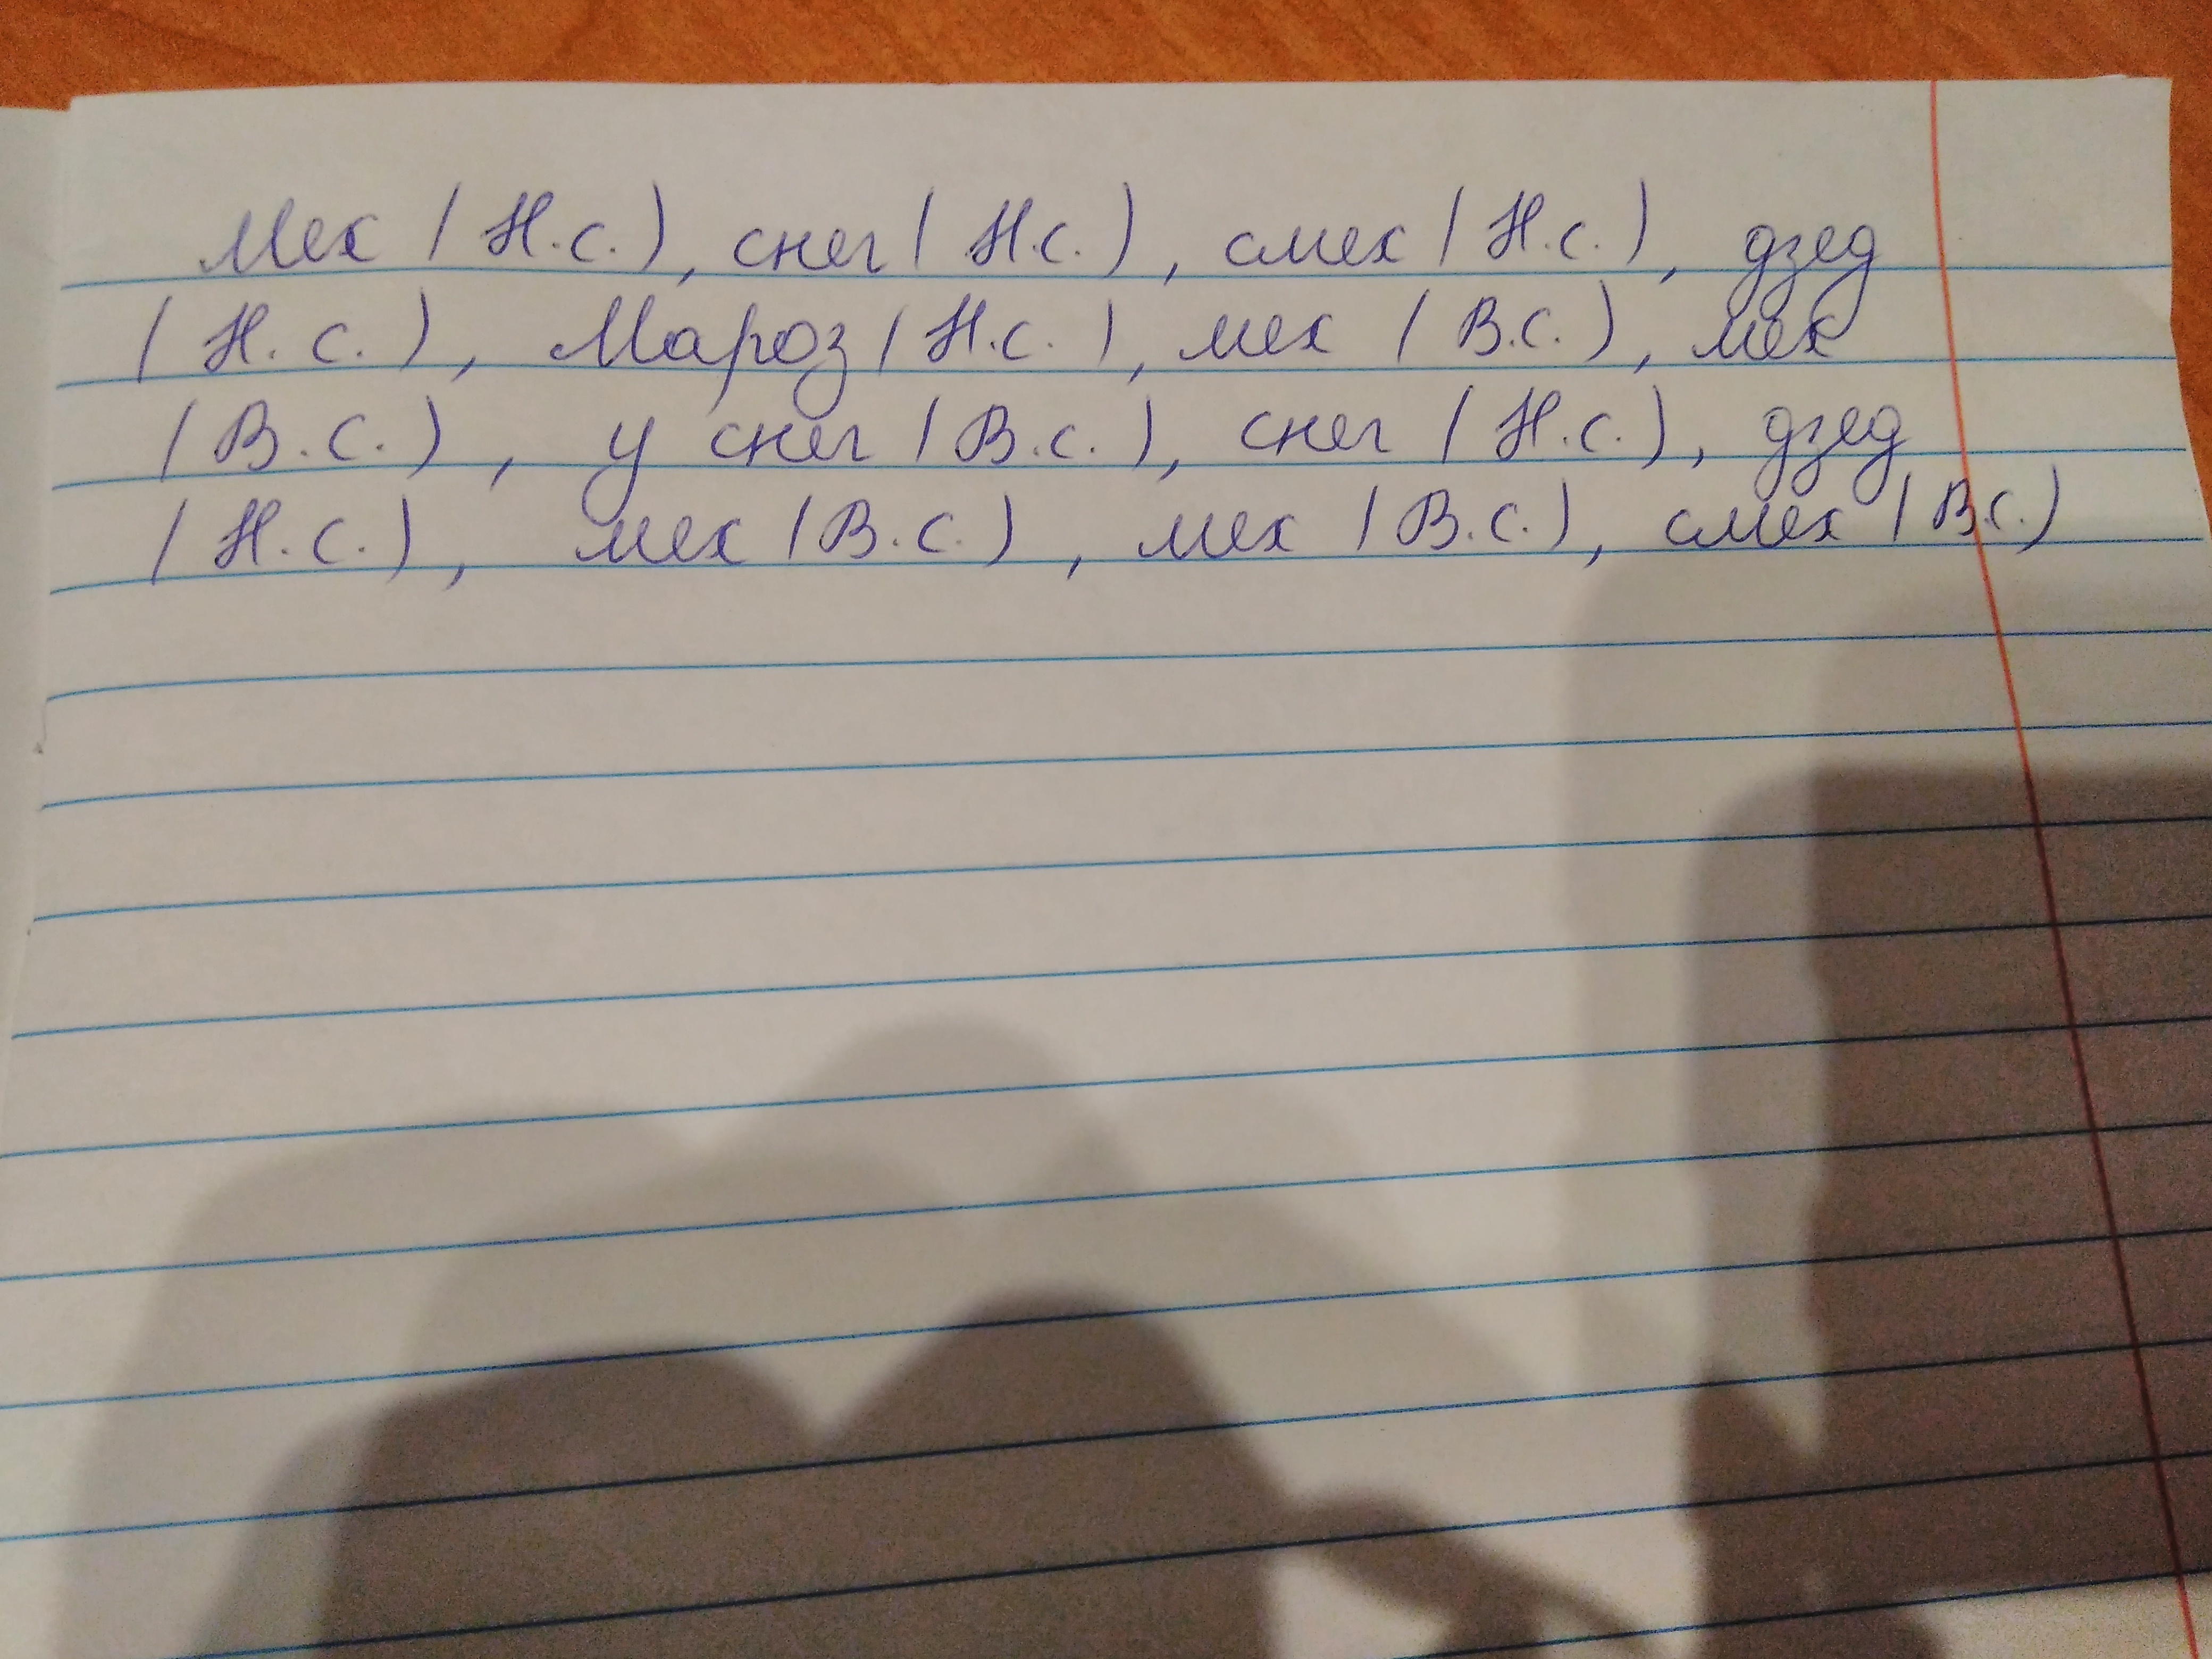 Мех (Н.с.), снег (Н.с.), смех (Н.с.), дзед
(Н.с.), Мароз (Н.с.), мех (В.с.), мех
(В.с.), у снег (В.с.), снег (Н.с.), дзед
(Н.с.), мех (В.с.), мех (В.с.), смех (В.с.)